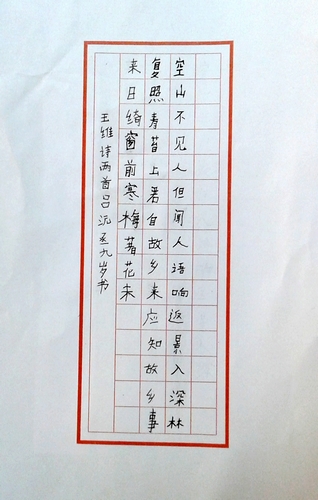 空山不见人但闻人语响返景入深林
复照青苔上君自故乡来应知故乡事
来日绮窗前寒梅著花未
王维诗两首吕沅丞九岁书